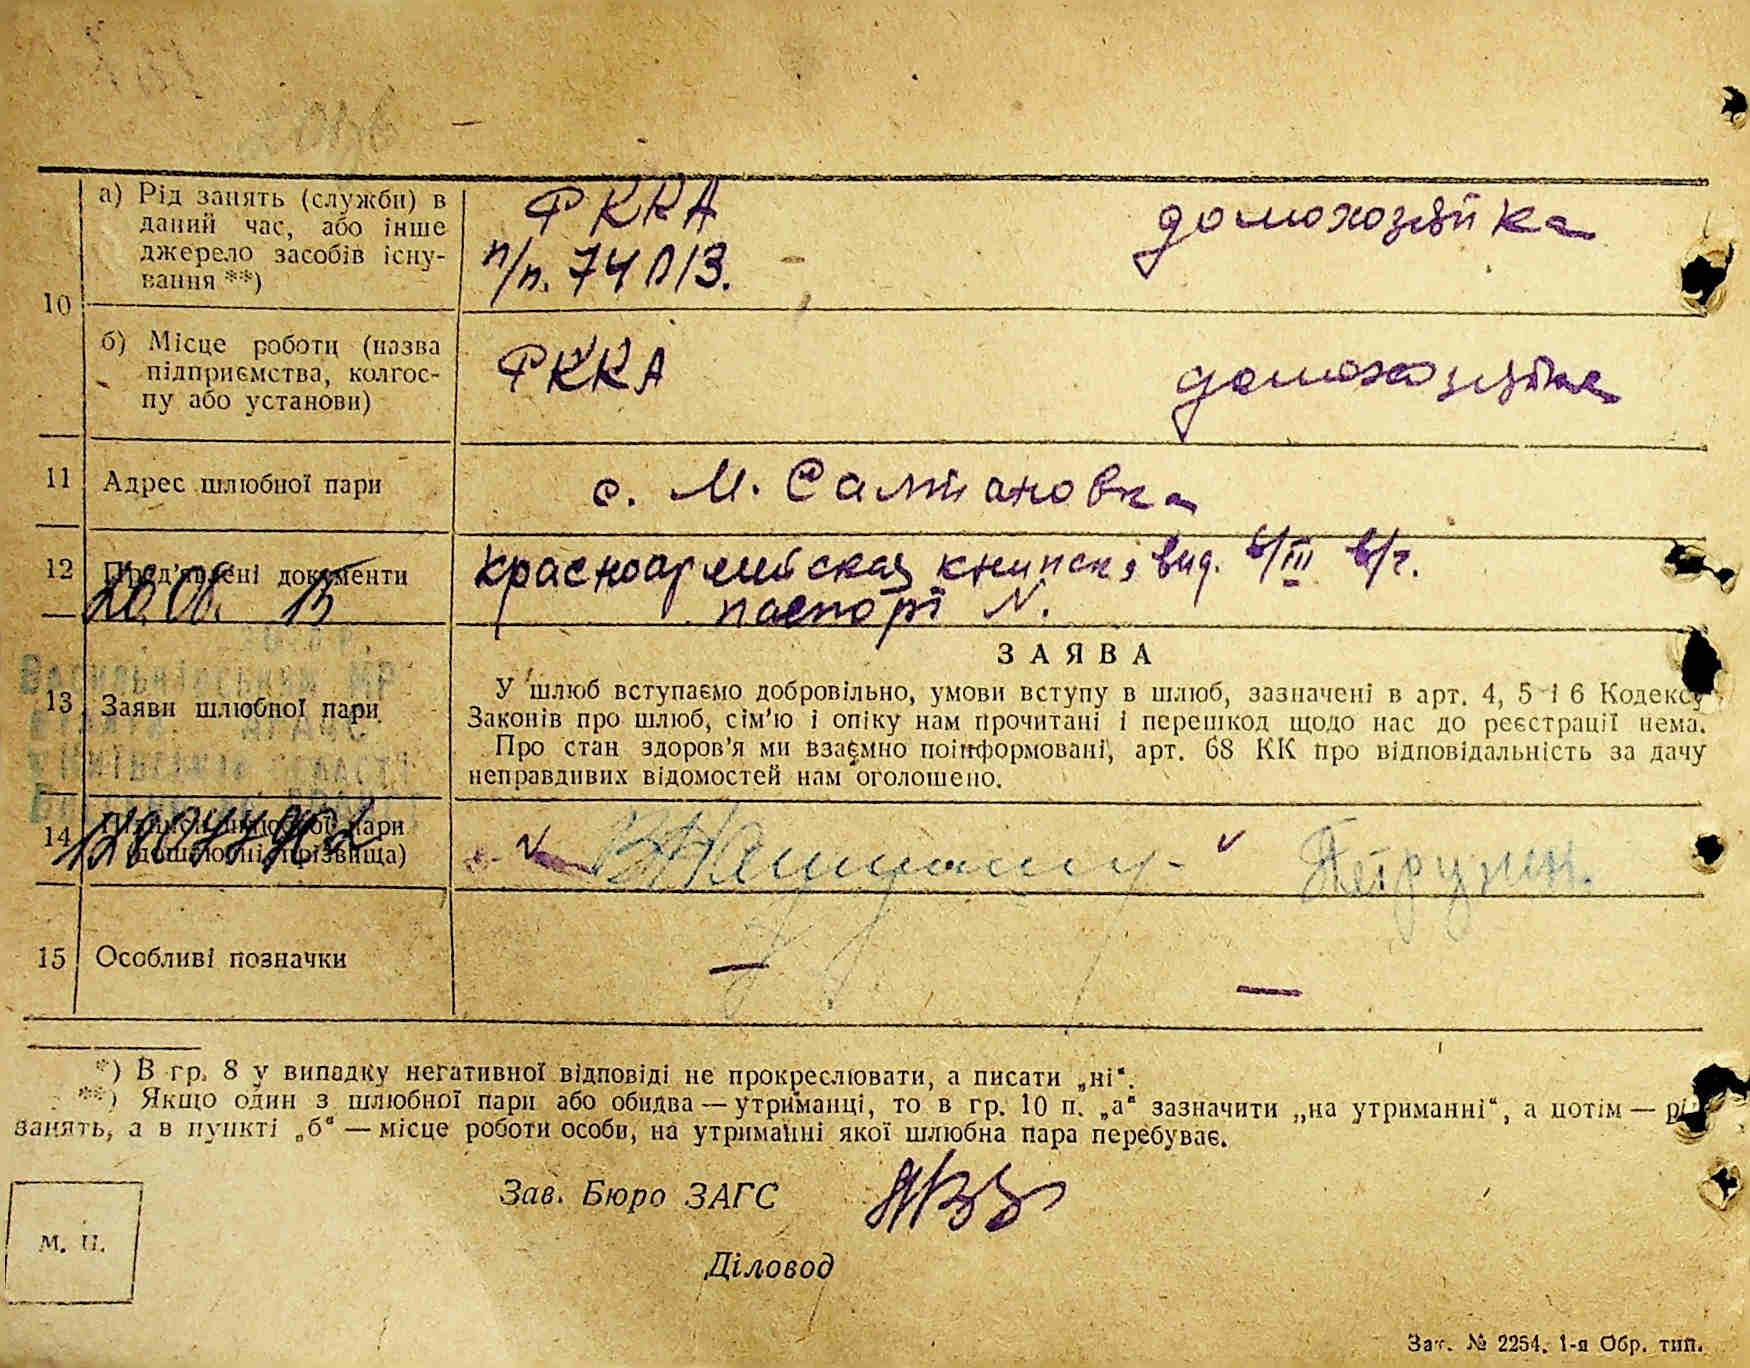 10
а) Рід занять (служби) в
даний час, або інше
джерело засобів існу-
вання **)
РККА
п/п. 74013.
домохозяйка
б) Місце роботи (назва
підприємства, колгос-
пу або установи)
РККА
домохозяйка
11 Адрес шлюбної пари
с. М. Салтановка
12 Пред'явлені документи
20.08. 15
красноармейская книжка вид. в/г.
паспорт N.
ЗАЯВА
13 Заяви шлюбної пари
У шлюб вступаємо добровільно, умови вступу в шлюб, зазначені в арт. 4, 5 і 6 Кодексу
Законів про шлюб, сім'ю і опіку нам прочитані і перешкод щодо нас до реєстрації нема.
Про стан здоров'я ми взаємно поінформовані, арт. 68 КК про відповідальність за дачу
неправдивих відомостей нам оголошено.
14 Підписи шлюбної пари
(дошлюбні прізвища)
15 Особливі позначки
— —
*) В гр. 8 у випадку негативної відповіді не прокреслювати, а писати „ні“.
**) Якщо один з шлюбної пари або обидва — утриманці, то в гр. 10 п. „а“ зазначити „на утриманні“, а потім — рід
занять, а в пункті „б“ — місце роботи особи, на утриманні якої шлюбна пара перебуває.
Зав. Бюро ЗАГС
М. П.
Діловод
Зат. № 2254. 1-я Обр. тип.